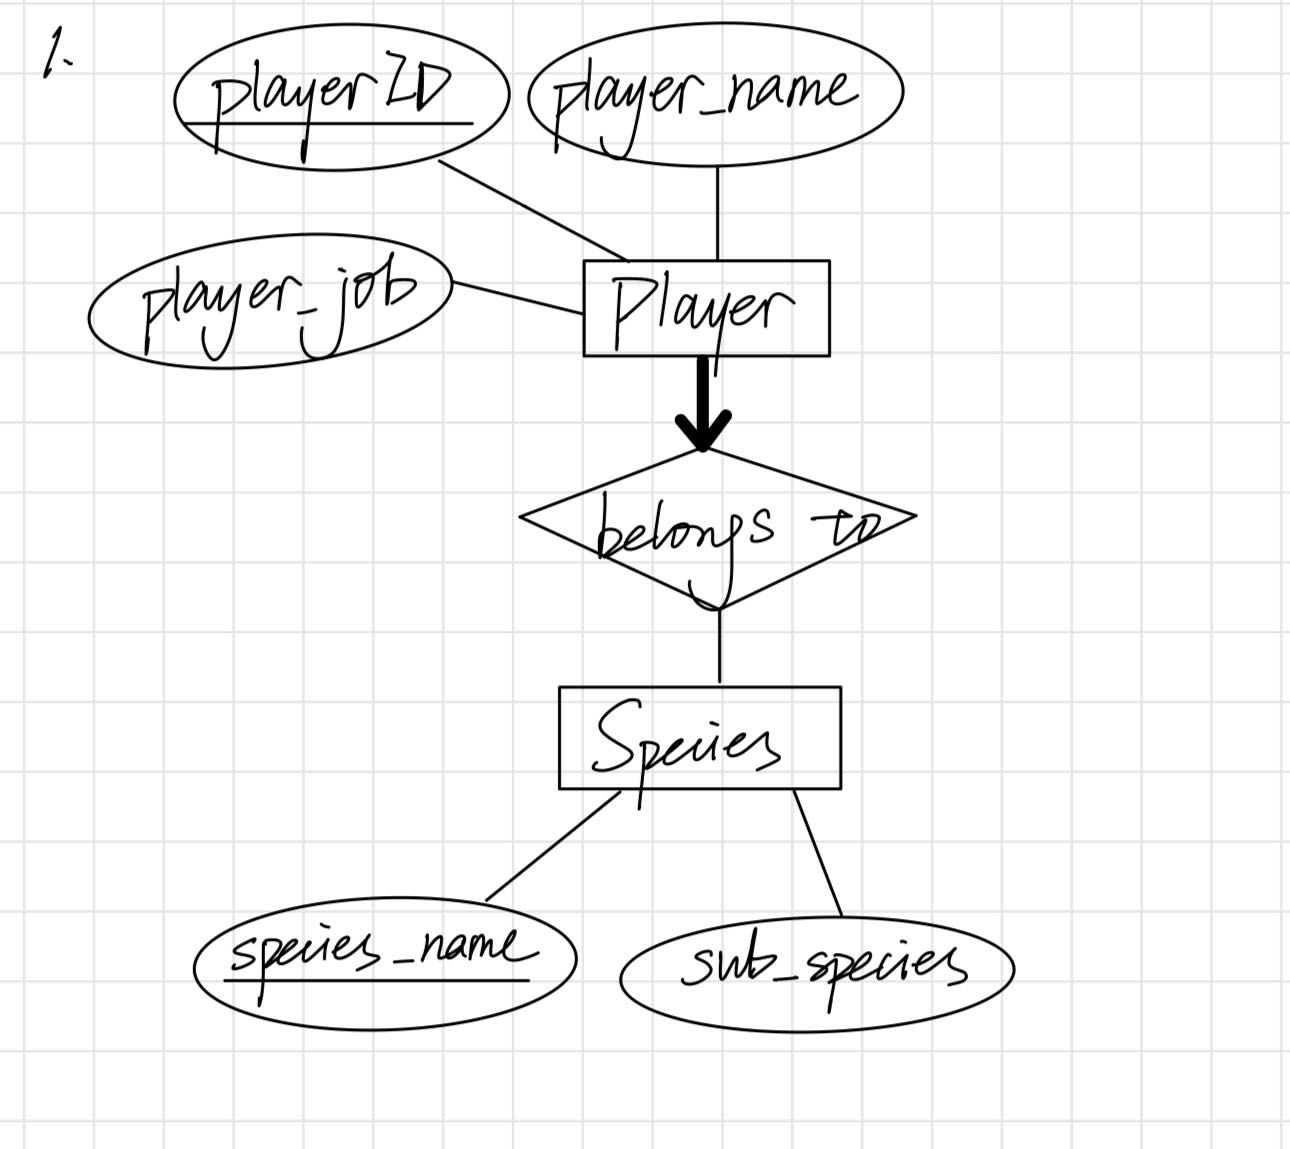 1.
playerID
player_name
player_job
Player
belongs to
Species
species_name
sub_species